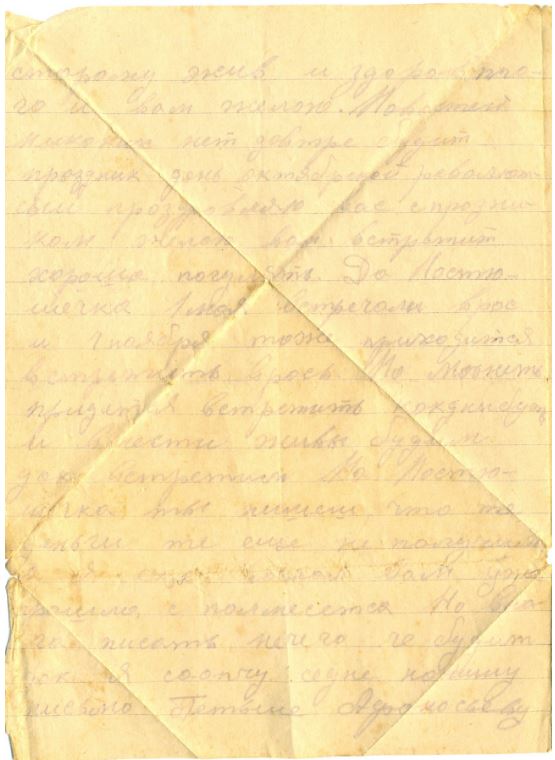 сторожу жив и здоров, что
го и вам желаю. Новостей
никаких нет завтре будит
праздник день октябрской револют
сыи проздровляю вас спрозни
ком желаю вам встретит
хорошо погулять. Да Костю-
шечка 1 мая встречали врос
и 7 ноября тоже приходится
встречать врось Но может
придятся встретить
и вместе живы будим
дак встретим Но Костю-
шечка ты пишеш, что те
деньги те еще не получили
я вам уже
прошло с полмесетса Но
писать нечего че будит
дак я соопчу седне напишу
письмо Петьше